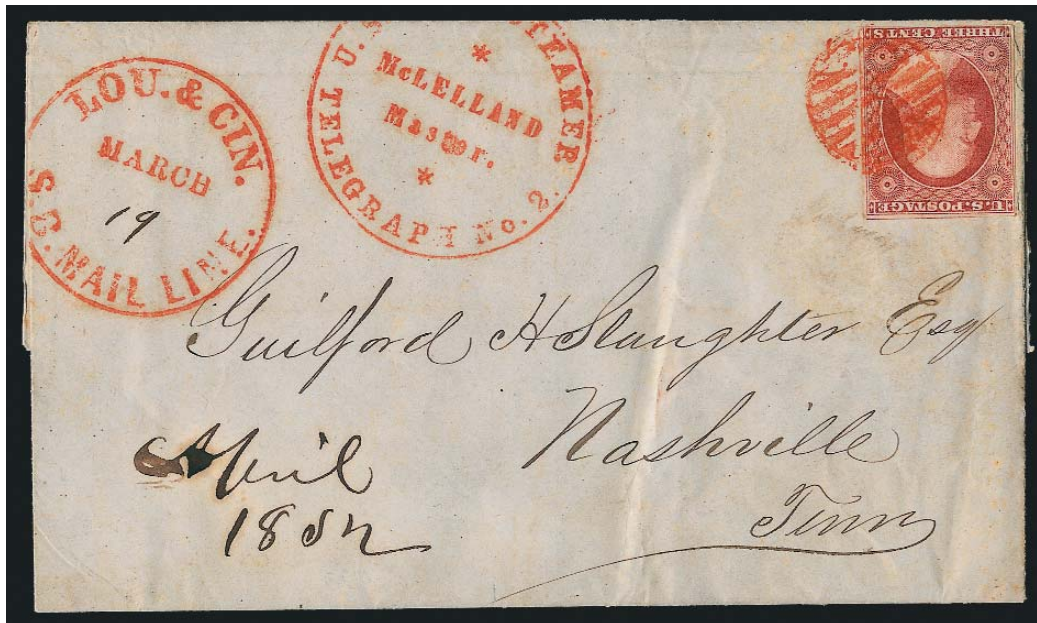 LOU. & CIN.
MARCH
19
S.B. MAIL LINE.
U. STEAMER
McLELLAND
Master.
TELEGRAPH No. 2.
THREE CENTS
U.S. POSTAGE
Guilford H Slaughter Esq
Nashville
Tenn
April
1852